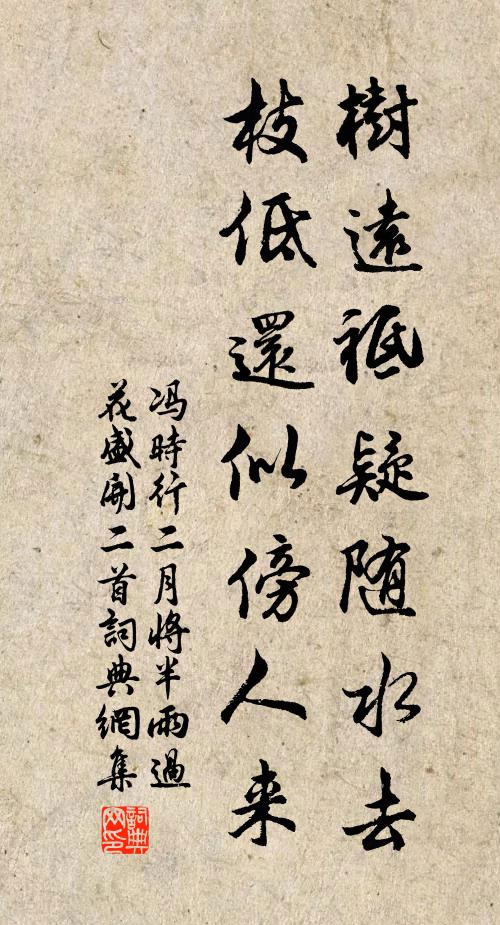 樹遠祗疑随水去
枝低還似傍人来
冯時行二月將半雨過
花盛開二首詞典網集
詞典
网印